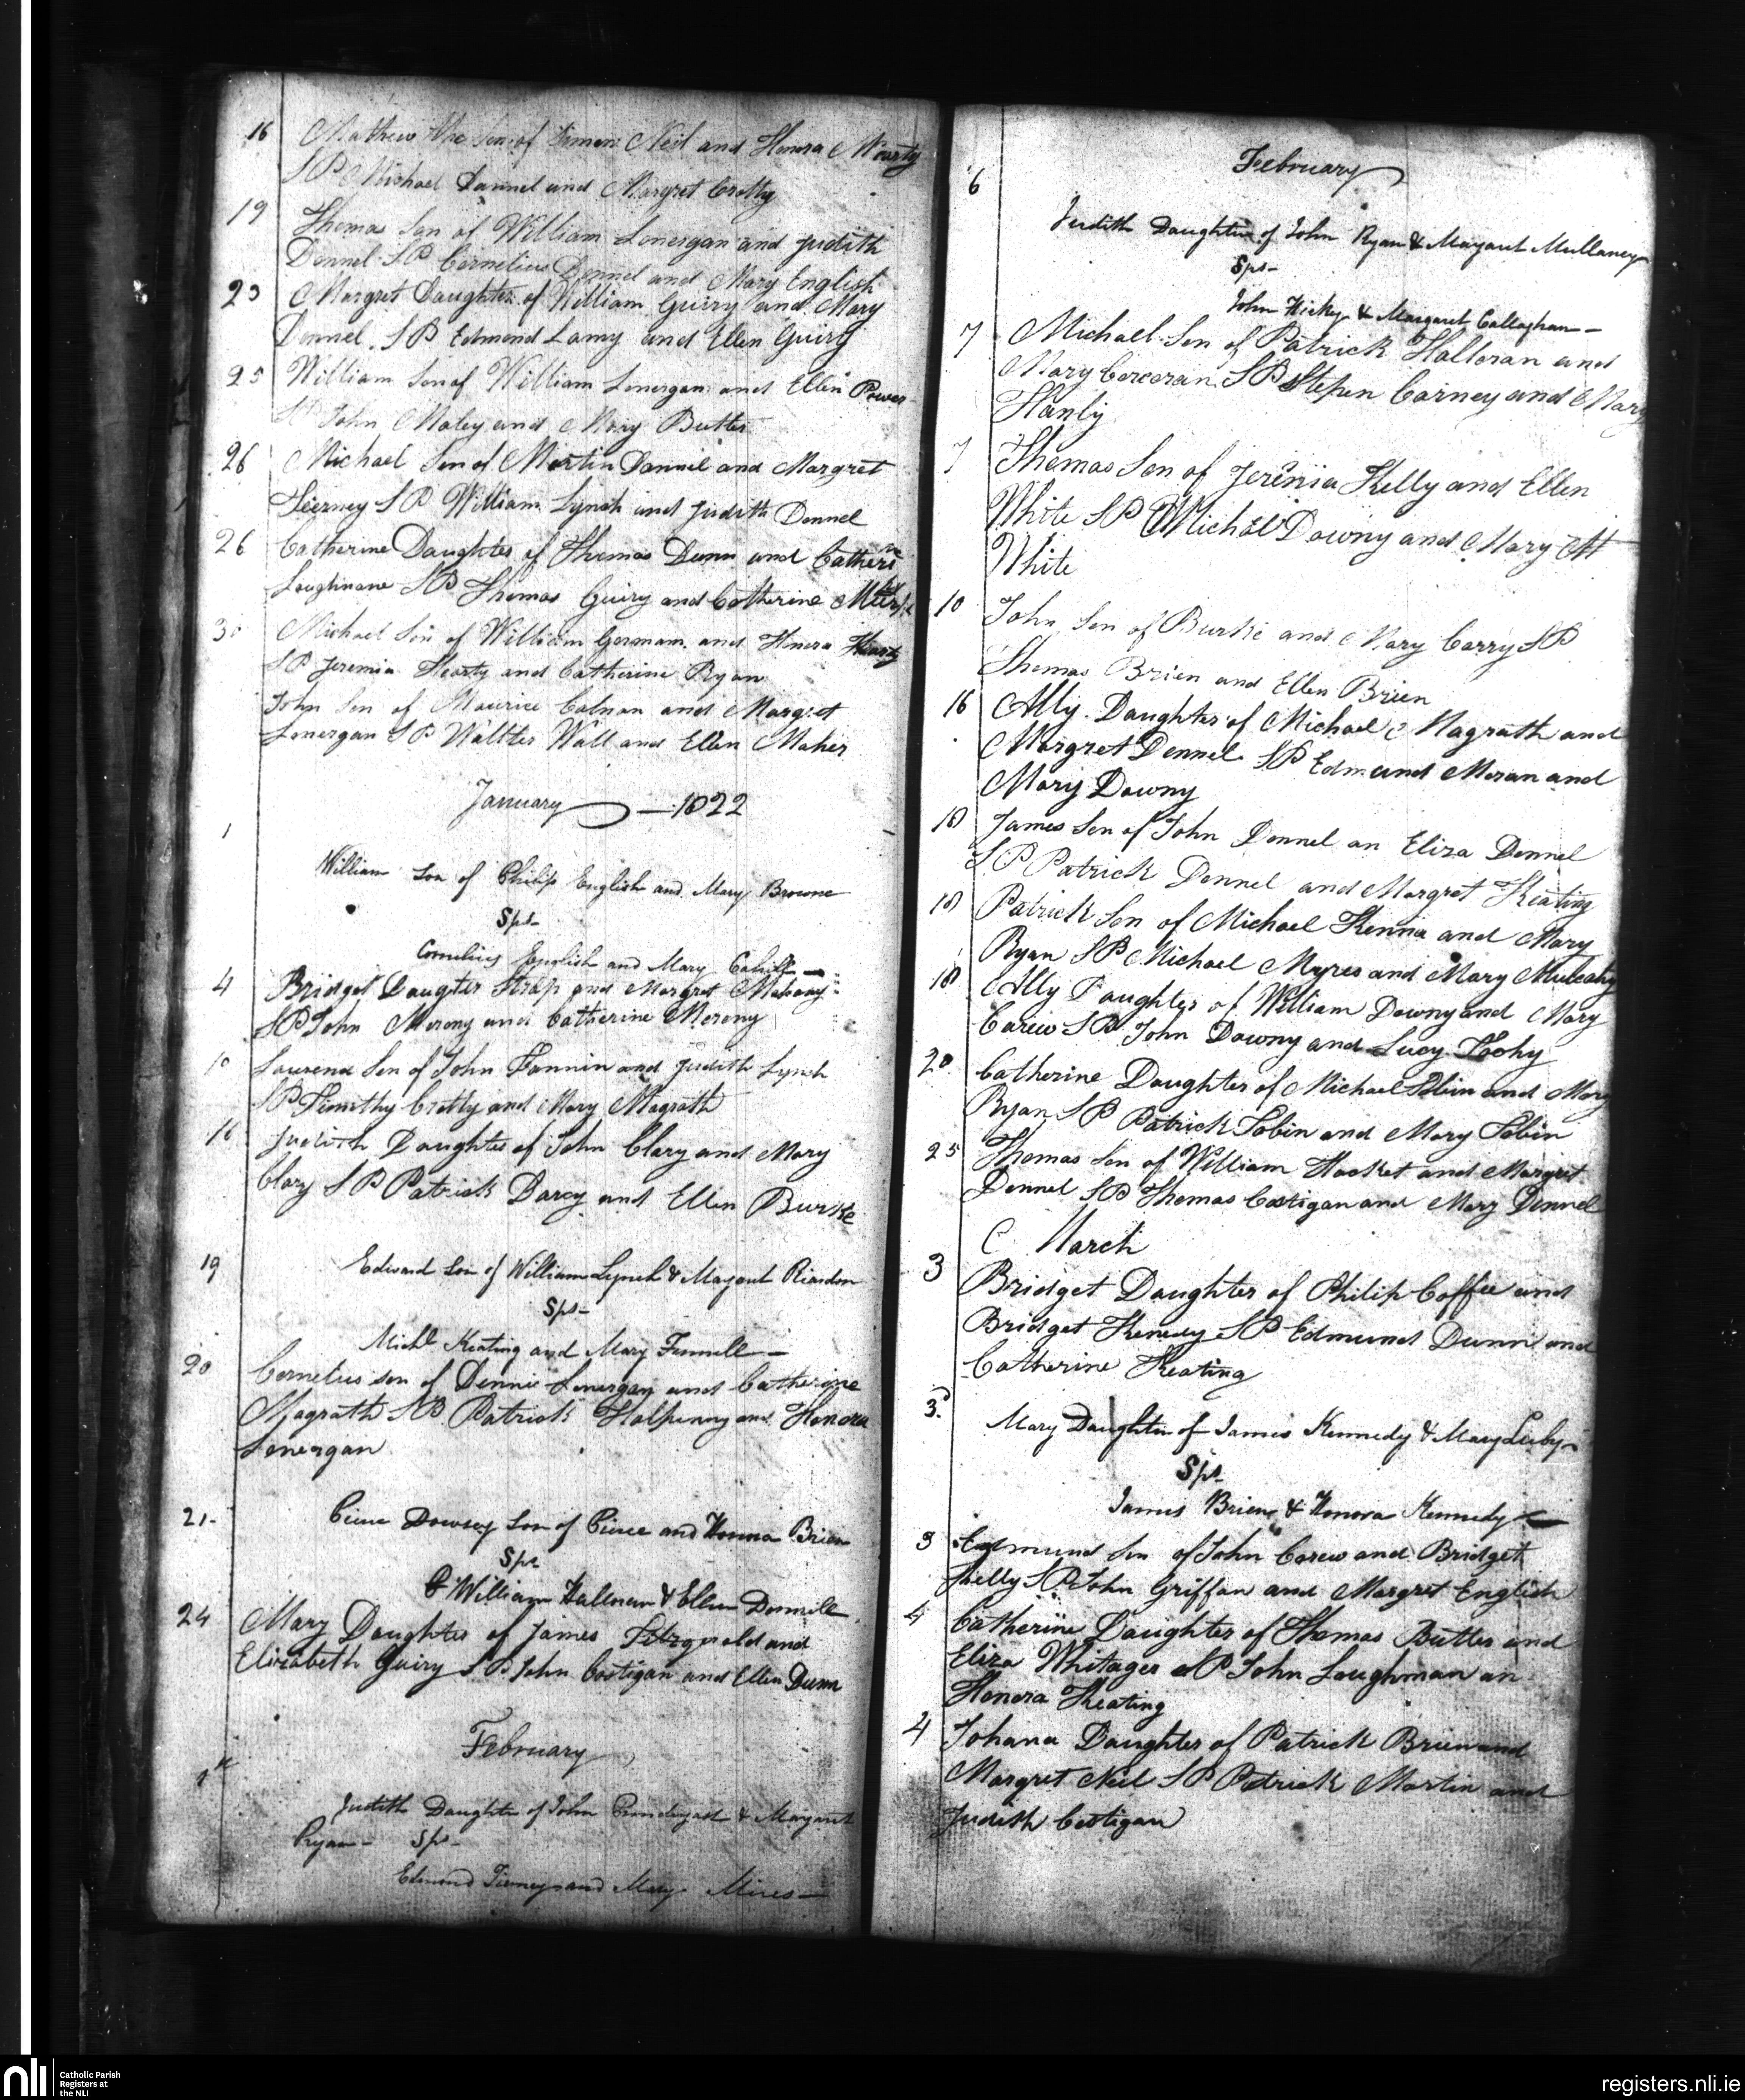 16 Mathew the Son of Simon Neil and Honora
SP Michael Dannel and Margret Crotty
19 Thomas Son of William Lonergan and Judith
Donnel SP Cornelius Donnel and Mary English
23 Margret Daughter of William Guiry and Mary
Donnel SP Edmond Lamy and Ellen Guiry
25 William Son of William Lonergan and Ellin Power
SP John Maley and Mary Butler
26 Michael Son of Martin Dannil and Margret
Teirney SP William Lynch and Judith Donnel
26 Catherine Daughter of Thomas Dunn and Catherine
Loughnane SP Thomas Guiry and Catherine
30 Michael Son of William Gorman and Honora Hearty
SP Jeremia Hearty and Catherine Ryan
John Son of Maurice Calnan and Margret
Lonergan SP Walther Wall and Ellen Maher
January — 1822
1
William Son of Philip English and Mary Browne
Sps—
Cornelius English and Mary Cahill —
4 Bridget Daugter Strap and Margret Mahony
SP John Morony and Catherine Morony
10 Laurena Son of John Fannin and Judith Lynch
SP Timothy Crotty and Mary Magrath
16 Judith Daughter of John Clary and Mary
Clary SP Patrick Darcy and Ellen Burke
19 Edward Son of William Lynch & Margaret Riardon
Sps—
Michl Keating and Mary Fennell —
20 Cornelius son of Dennis Lonergan and Catherine
Magrath SP Patrick Halpenny and Honora
Lonergan
21- Pierce Dowsey Son of Pierce and Honora Brien
Sps
William Hallinan & Ellen Donnill
24 Mary Daughter of James Fitzgerald and
Elizabeth Guiry SP John Costigan and Ellen Dunn
February
1st
Judith Daughter of John Prindergast & Margaret
Ryan — Sps—
Edmond Tierney and Mary Mires —
February
6
Judith Daughter of John Ryan & Margaret Mullaney
Sps—
John Hickey & Margaret Callaghan —
7 Michael Son of Patrick Halloran and
Mary Corcoran SP Stepen Carney and Mary
Hanly
7 Thomas Son of Jeremia Kelly and Ellen
White SP Michal Downy and Mary M
White
10 John Son of Burke and Mary Carry SP
Thomas Brien and Ellen Brien
16 Ally Daughter of Michael Magrath and
Margret Donnel SP Edmund Moran and
Mary Downy
18 James Son of John Donnel an Eliza Donnel
SP Patrick Donnel and Margret Keating
18 Patrick Son of Michael Kenna and Mary
Ryan SP Michael Myres and Mary Mulcahy
18 Ally Daughter of William Downy and Mary
Carew SP John Downy and Lucy Loohy
20 Catherine Daughter of Michael Tobin and Mary
Ryan SP Patrick Tobin and Mary Tobin
25 Thomas Son of William Hacket and Margret
Donnel SP Thomas Costigan and Mary Donnel
March
3 Bridget Daughter of Philip Coffee and
Bridget Kenedy SP Edmund Dunn and
Catherine Keating
3d Mary Daughter of James Kennedy & Mary Luby
Sps
James Brien & Honora Kennedy
3 Edmund Son of John Carew and Bridget
Kelly SP John Griffan and Margret English
4 Catherine Daughter of Thomas Butler and
Eliza Whitager SP John Loughman an
Honora Keating
4 Johana Daughter of Patrick Brien and
Margret Neil SP Patrick Martin and
Judith Costigan
nli
Catholic Parish
Registers at
the NLI
registers.nli.ie